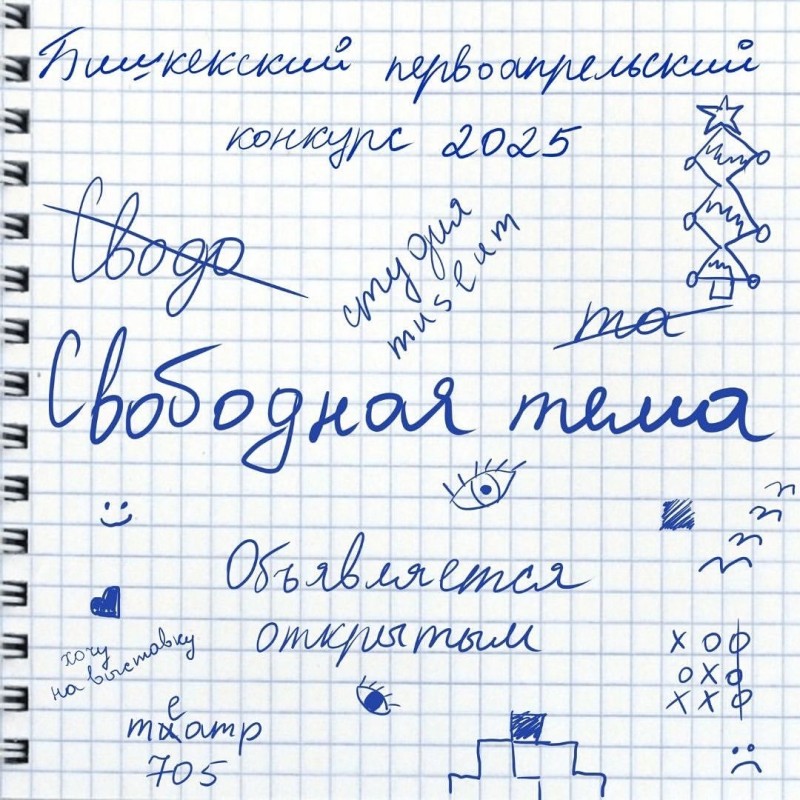 Бишкекский первоапрельский
конкурс 2025
Сводо
студия
museum
та
Свободная тема
Объявляется
открытым
хочу
на выставку
театр
705
х о о
о х о
х х о